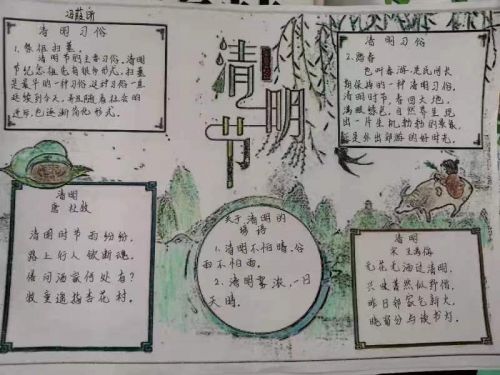 清明习俗
1、祭祖扫墓。
清明节的主要习俗，清明
节纪念祖先有很多形式，扫墓
是最早的一种习俗，这种习俗一直
延续到今天，并且随着社会的
进步也逐渐简化形式。
清明节
清明习俗
2、踏春
也叫春游，是民间长
期保持的一种清明习俗，
清明时节，春回大地，
满眼绿色，自然界呈现
出一片生机勃勃的景象，
正是外出郊游的好时光。
清明
唐 杜牧
清明时节雨纷纷，
路上行人欲断魂。
借问酒家何处有？
牧童遥指杏花村。
关于清明的
谚语
1、清明不怕晴，谷
雨不怕雨。
2、清明雾浓，一日
天晴。
清明
宋 王禹偁
无花无酒过清明，
兴味萧然似野僧。
昨日邻家乞新火，
晓窗分与读书灯。